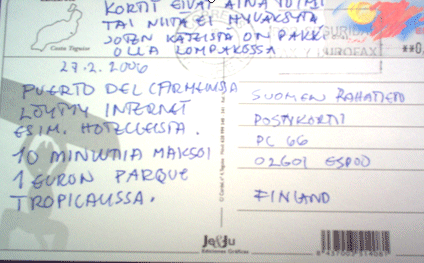 KORTIT EIVÄT AINA TOIMI
TAI NIITÄ EI HYVÄKSYTÄ
JOTEN KÄTEISTÄ ON PAKKO
OLLA LOMPAKOSSA
Costa Teguise
EUROFAX
27.2. 2006
PUERTO DEL CARMENISSA
LÖYTYY INTERNET
ESIM. HOTELLEISTA.
10 MINUUTIA MAKSOI
1 EURON PARQUE
TROPICALISSA.
SUOMEN RAHATIETO
POSTIKORTIT
PL 66
02601 ESPOO
FINLAND
Je&Ju
Ediciones Gráficas